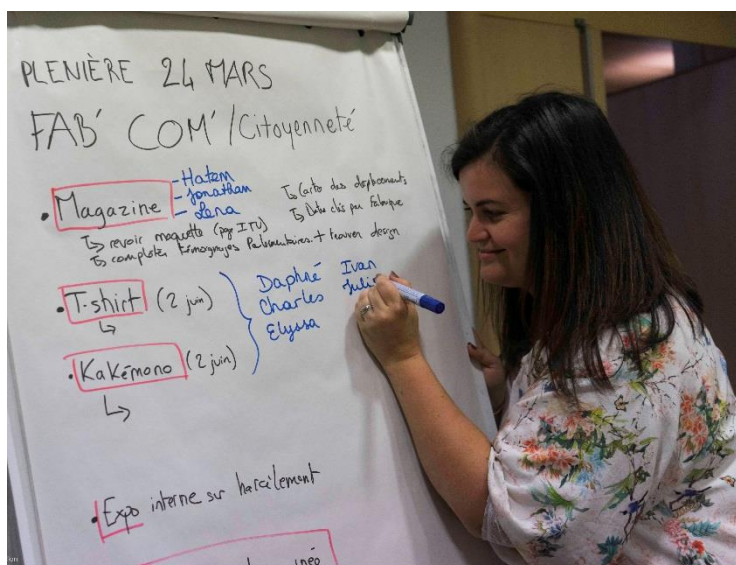 PLENIÈRE 24 MARS
FAB' COM' / Citoyenneté
• Magazine
- Hatem
- Jonathan
- Lena
↳ Carte des déplacements
↳ Date clés par Fabrique
↳ revoir maquette (page ITV)
↳ compléter témoignages Parlementaires + trouver design
• T-shirt (2 juin)
↳
• Kakémono (2 juin)
↳
Daphné Ivan
Charles
Elyssa
• Expo interne sur harcèlement